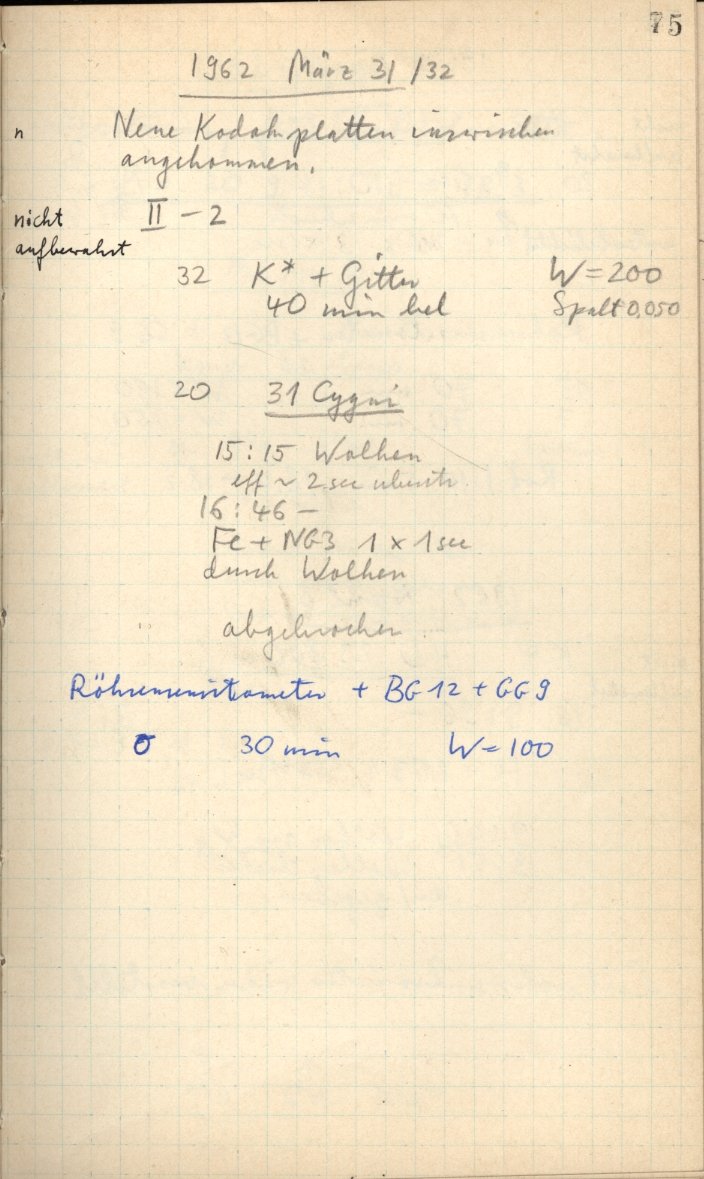 75
1962 März 31/32
n Neue Kodakplatten inzwischen
angekommen.
nicht II - 2
aufbewahrt
32 K* + Gitter W = 200
40 min bel Spalt 0,050
20 31 Cygni
15:15 Wolken
eff ~ 2 sec
16:46 –
Fe + NG3 1 x 1 sec
durch Wolken
abgebrochen
Röhrensensitometer + BG 12 + GG 9
30 min W = 100